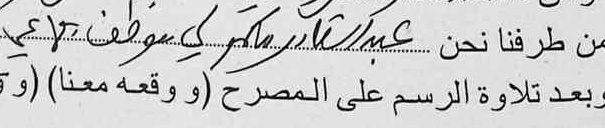 من طرفنا نحن عبد القادر موظف جماعي
وبعد تلاوة الرسم على المصرح (و وقعه معنا) (و